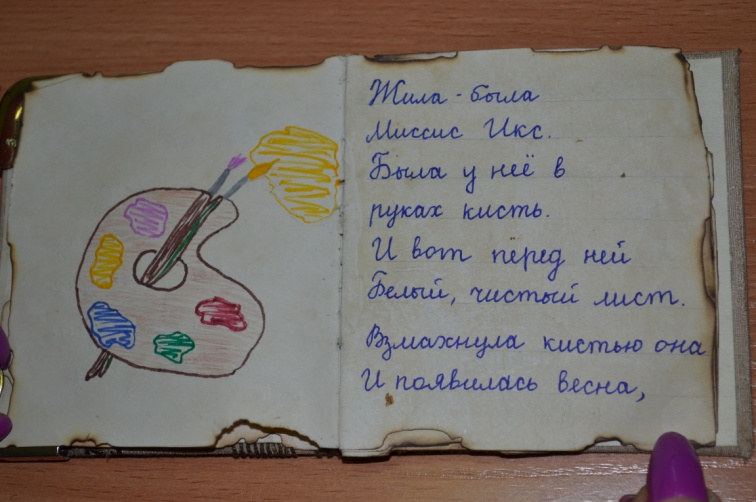 Жила-была
Миссис Икс.
Была у неё в
руках кисть.
И вот перед ней
Белый, чистый лист.
Взмахнула кистью она
И появилась весна,